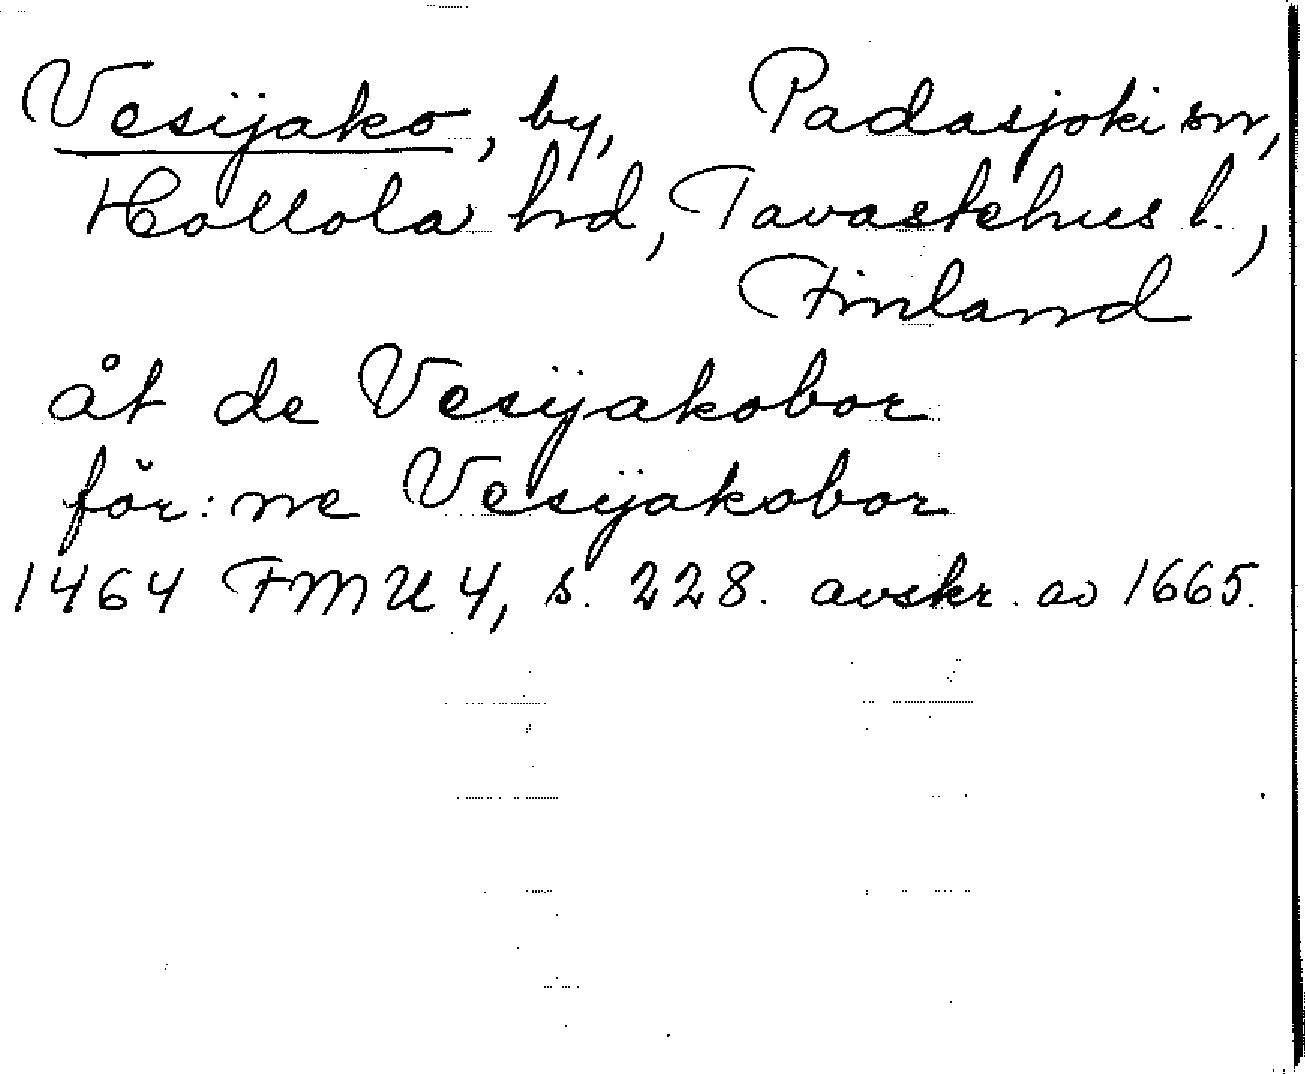 Vesijako, by, Padasjoki sn,
Hollola hd, Tavastehus l.,
Finland
åt de Vesijakobor
för:ne Vesijakobor
1464 FMU 4, s. 228. avskr. av 1665.